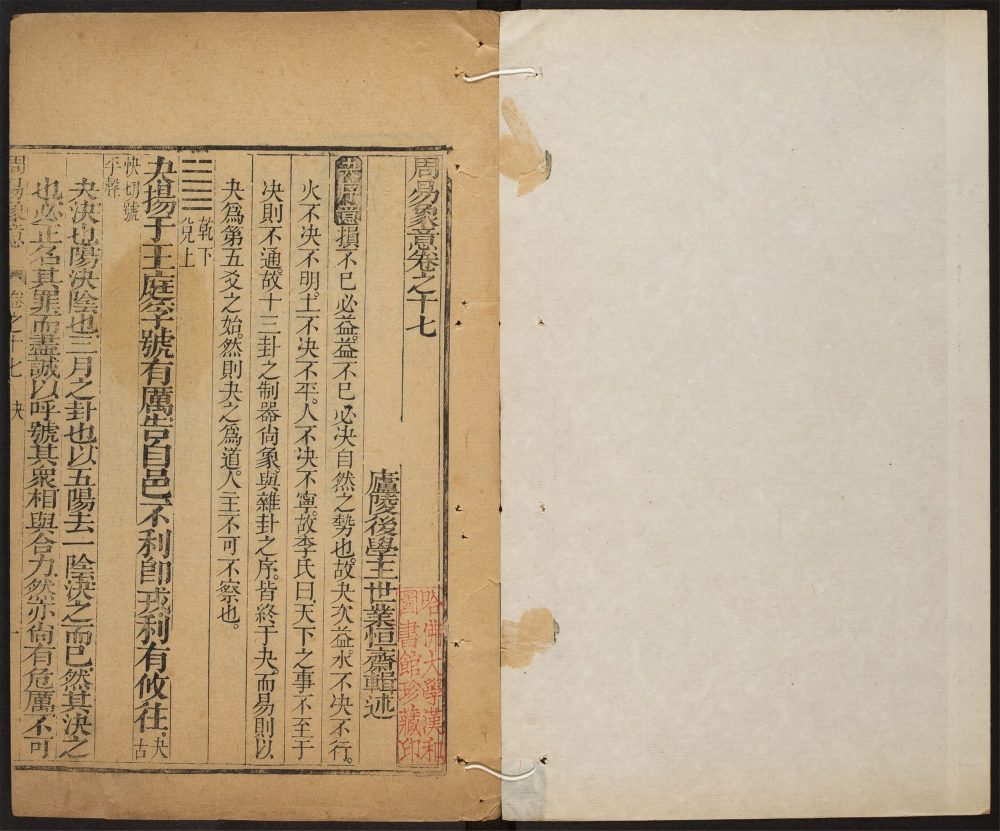 周易象意卷之十七
廬陵後學王世業恒齋輯述
夬序意損不已必益益不已必决自然之勢也故夬次益水不决不行
火不决不明土不决不平人不决不寧故李氏曰天下之事不至于
决則不通故十三卦之制器尚象與雜卦之序皆終于夬而易則以
夬爲第五爻之始然則夬之爲道人主不可不察也
乾下
兌上
夬揚于王庭孚號有厲告自邑不利卽戎利有攸往夬古
快切號
平聲
夬决也陽决陰也三月之卦也以五陽去一陰决之而已然其决之
也必正名其罪而盡誠以呼號其衆相與合力然亦尙有危厲不可
周易象意 卷之十七 夬 一
哈佛大學漢和
圖書館珍藏印